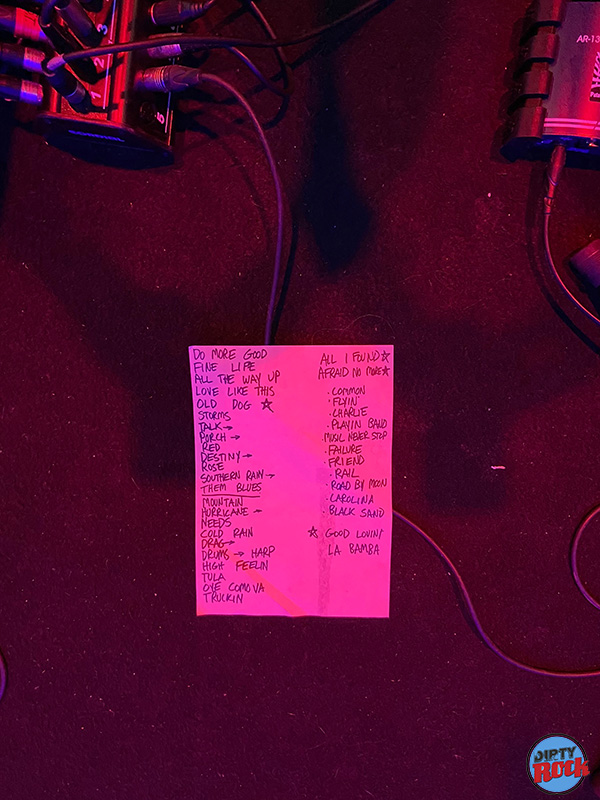 3
2
1
AR-13
DO MORE GOOD
FINE LIFE
ALL THE WAY UP
LOVE LIKE THIS
OLD DOG ☆
STORMS
TALK →
PORCH →
RED
DESTINY →
ROSE
SOUTHERN RAIN →
THEM BLUES
MOUNTAIN
HURRICANE →
NEEDS
COLD RAIN
DRAG →
DRUMS → HARP
HIGH FEELIN
TULA
OYE COMO VA
TRUCKIN
ALL I FOUND ☆
AFRAID NO MORE ☆
· COMMON
· FLYIN'
· CHARLIE
· PLAYIN BAND
MUSIC NEVER STOP
· FAILURE
· FRIEND
· RAIL
· ROAD BY MOON
· CAROLINA
· BLACK SAND
☆ GOOD LOVIN'
LA BAMBA
DIRTY
Rock